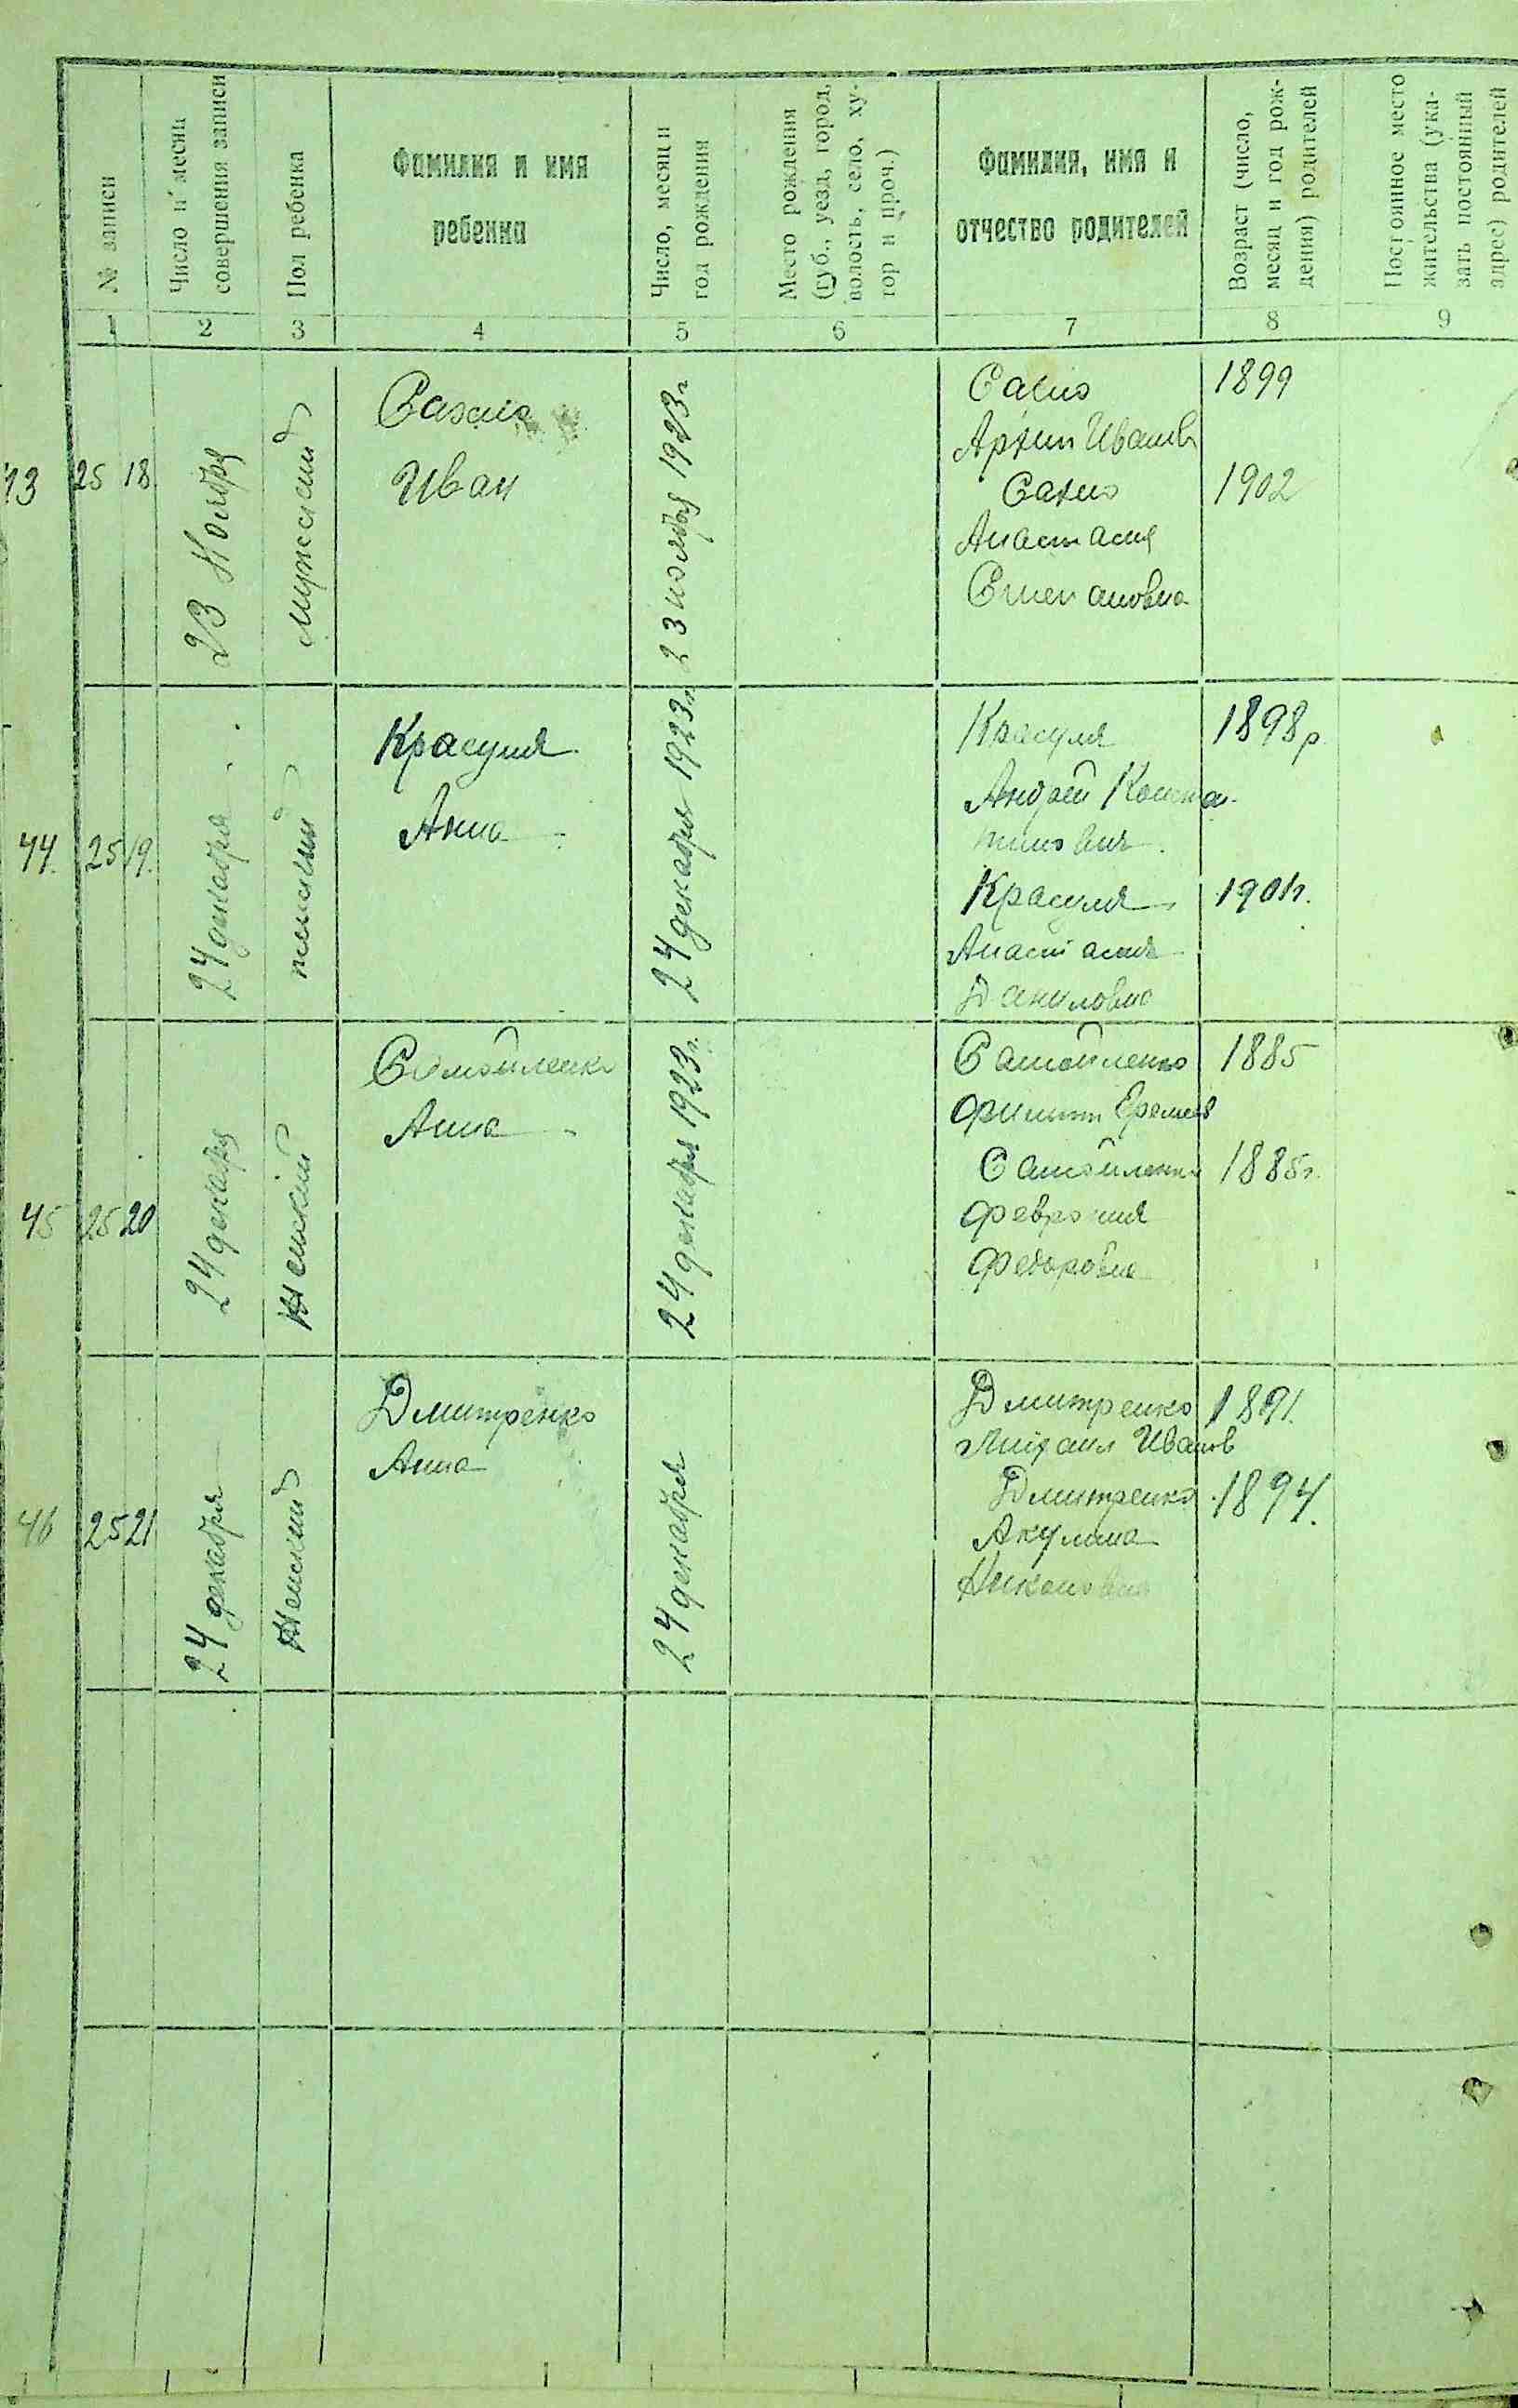 № записи
Число и месяц
совершения записи
Пол ребенка
Фамилия и имя
ребенка
Число, месяц и
год рождения
Место рождения
(губ., уезд, город,
волость, село, ху-
тор и проч.)
Фамилия, имя и
отчество родителей
Возраст (число,
месяц и год рож-
дения) родителей
Постоянное место
жительства (ука-
зать постоянный
адрес) родителей
1 2 3 4 5 6 7 8 9
25 18
23 Ноября
мужский
Сахно
Иван
23 ноября 1923 г
Сахно
Архип Иванов
Сахно
Анастасия
Степановна
1899
1902
44. 25 19.
24 декабря
женский
Красуля
Анна
24 декабря 1923 г.
Красуля
Андрей Констан-
тинович.
Красуля
Анастасия
Даниловна
1898 р.
1901 г.
45 25 20
24 декабря
Женский
Самойленко
Анна
24 декабря 1923 г.
Самойленко
Филипп Еремеев
Самойленко
Феврония
Федоровна
1885
1885 г.
46 25 21
24 декабря
Женский
Дмитренко
Анна
24 декабря
Дмитренко
Михаил Иванов
Дмитренко
Акулина
Никоновна
1891.
1894.